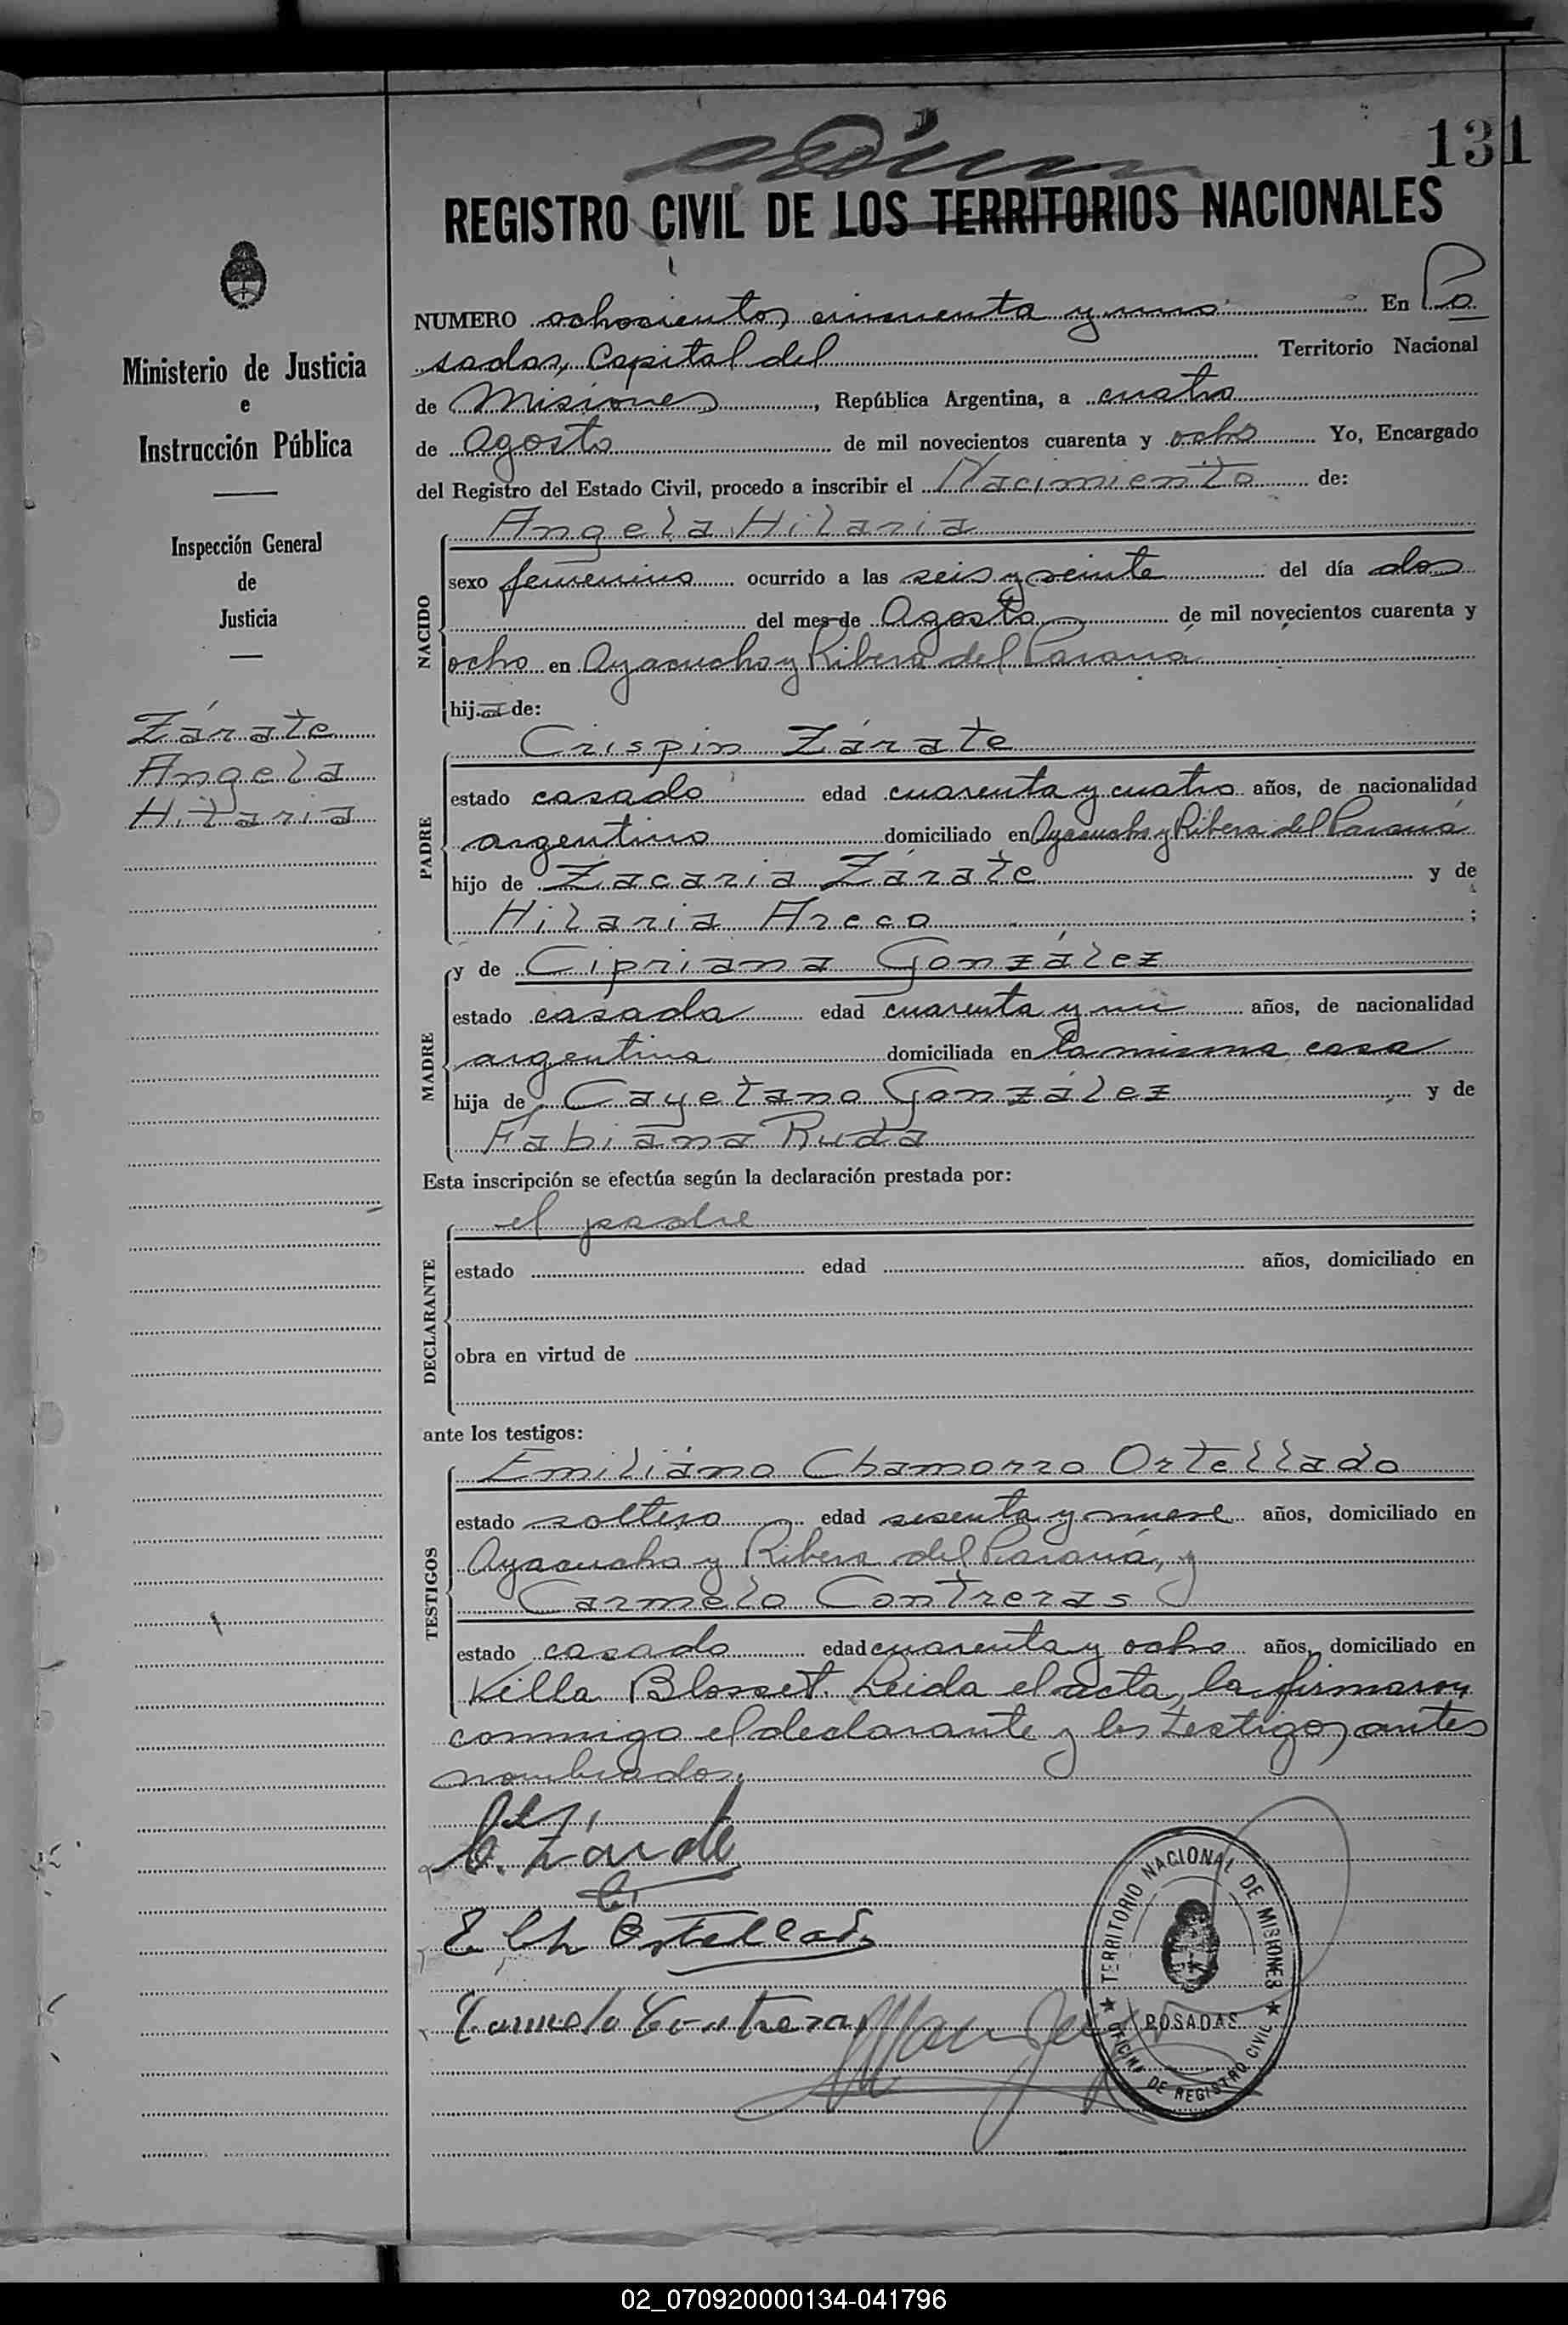 131
REGISTRO CIVIL DE LOS TERRITORIOS NACIONALES
Ministerio de Justicia
e
Instrucción Pública
Inspección General
de
Justicia
Zárate
Angela
Hilaria
NUMERO ochocientos cincuenta y uno En Po
sadas, Capital del Territorio Nacional
de Misiones, República Argentina, a cuatro
de Agosto de mil novecientos cuarenta y ocho Yo, Encargado
del Registro del Estado Civil, procedo a inscribir el Nacimiento de:
NACIDO
Angela Hilaria
sexo femenino ocurrido a las seis y veinte del día dos
del mes de Agosto de mil novecientos cuarenta y
ocho en Ayacucho y Ribera del Paraná
hija de:
PADRE
Crispin Zárate
estado casado edad cuarenta y cuatro años, de nacionalidad
argentino domiciliado en Ayacucho y Ribera del Paraná
hijo de Zacaria Zárate y de
Hilaria Areco ;
MADRE
y de Cipriana González
estado casada edad cuarenta y un años, de nacionalidad
argentina domiciliada en la misma casa
hija de Cayetano González y de
Fabiana Ruda
Esta inscripción se efectúa según la declaración prestada por:
DECLARANTE
el padre
estado edad años, domiciliado en
obra en virtud de
ante los testigos:
TESTIGOS
Emiliano Chamorro Ortellado
estado soltero edad sesenta y nueve años, domiciliado en
Ayacucho y Ribera del Paraná, y
Carmelo Contreras
estado casado edad cuarenta y ocho años, domiciliado en
Villa Blosset. Leida el acta, la firmaron
conmigo el declarante y los testigos antes
nombrados.
C. Zárate
E Ch Ortellado
Carmelo Contreras
TERRITORIO NACIONAL DE MISIONES
POSADAS
OFICINA DE REGISTRO CIVIL
02_070920000134-041796